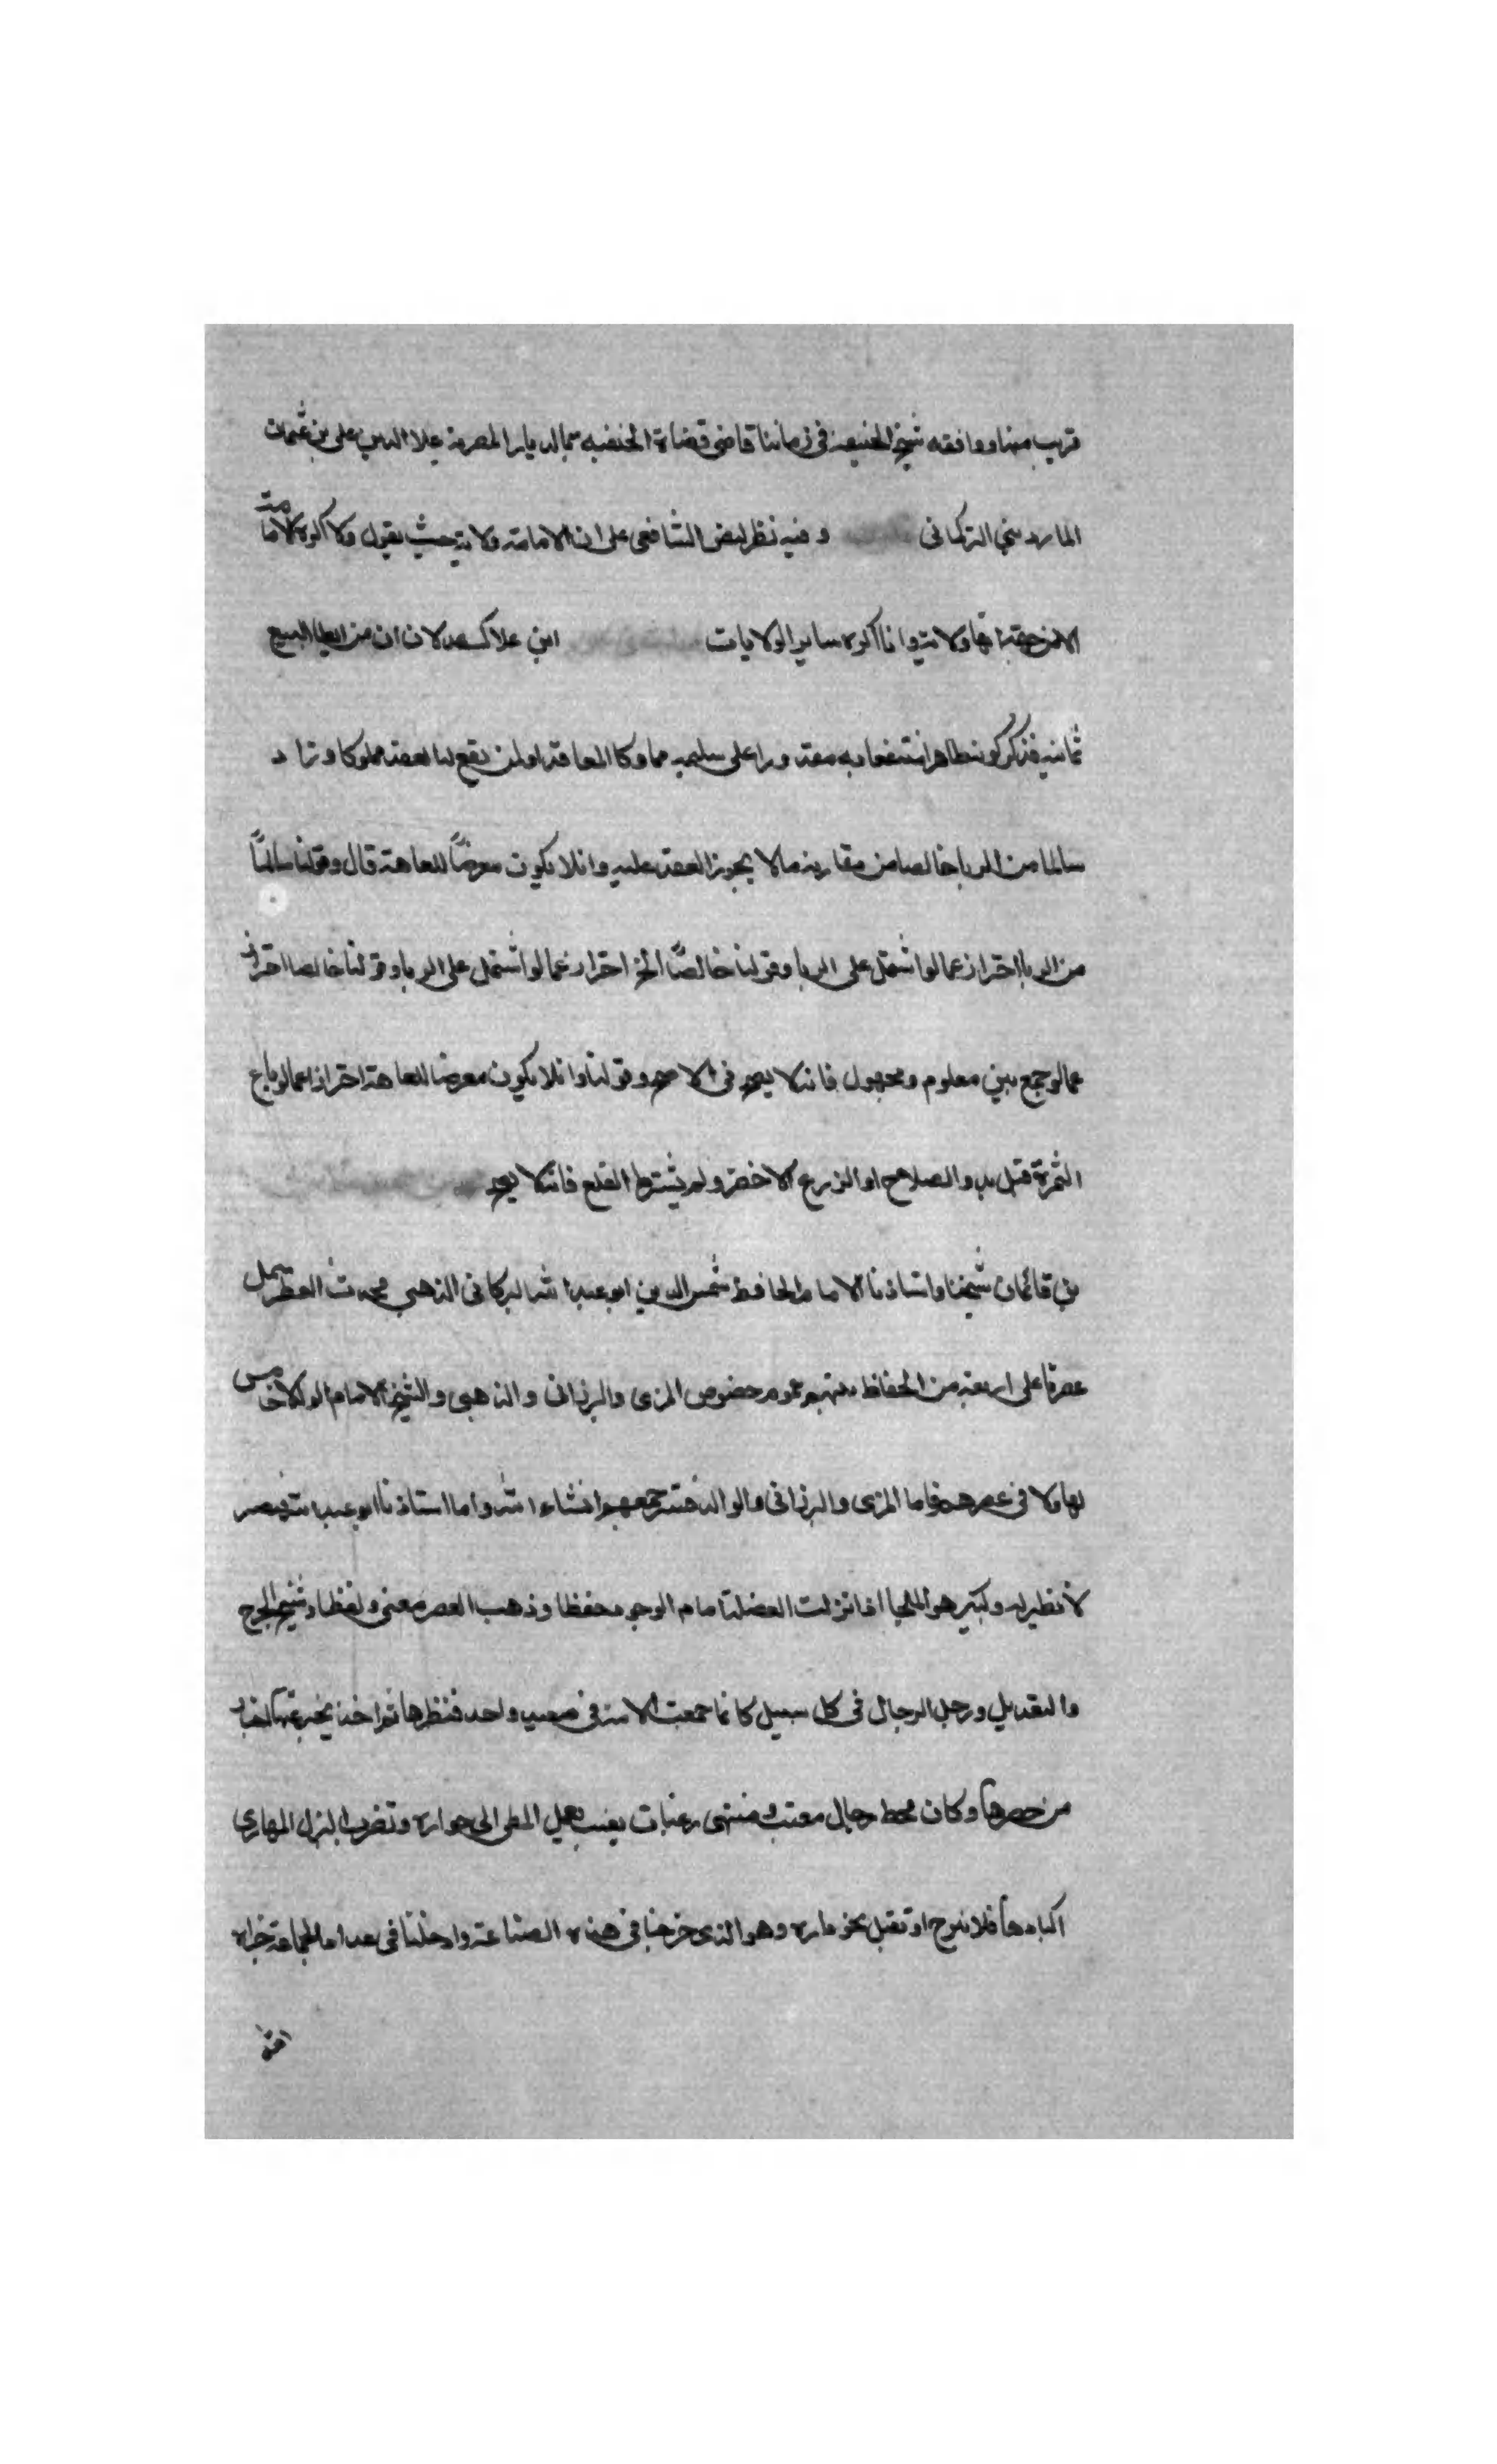 قريب منها ووافقه شيخ الحنيفة في زماننا قاضي قضاة الحنفيه بالديار المصرية علا الدين على بن عثمان
المارديني التركماني وفيه نظر لنص الشافعي على ان الامامة ولاية حيث يقول ولا اكره الامامة
الا من جهة انها ولاية وانا اكره ساير الولايات ابن علاك ان من شرايط المبيع
ثمانيه فذكر كونه طاهرا منتفعا به مقدورا على تسليمه مملوكا للعاقد او لمن يقع له العقد مملوكا وزاد
سالما من الربا خالصا من مقارنة مالا يجوز العقد عليه وان لا يكون معرضًا للعاهة قال وقولنا سالمًا
من الربا احتراز عما لو اشتمل على الربا وقولنا خالصًا الخ احتراز عما لو اشتمل على الربا وقولنا خالصا احتراز
عما لو جمع بين معلوم ومجهول فانه لا يصح في الاصح وقولنا وان لا يكون معرضا للعاهة احترازا عما لو باع
الثمرة قبل بدو الصلاح او الزرع الاخضر ولم يشترط القلع فانه لا يصح
بن قائمان شيخنا واستاذنا الامام الحافظ شمس الدين ابو عبد الله التركاني الذهبي محدث العصر اشتمل
عصرنا على اربعة من الحفاظ بينهم عموم وخصوص المزي والبرزالي والذهبي والشيخ الامام الوالد لا خامس
لهاولا في عصرهم فاما المزي والبرزالي والوالد فستترجمهم ان شاء الله واما استاذنا ابو عبد الله فبصر
لا نظير له وكبير هو الملجا اذا نزلت المعضلة امام الوجود حفظا وذهب العصر معنى ولفظا وشيخ الجرح
والتعديل ورجل الرجال في كل سبيل كانما جمعت الامة في صعيد واحد فنظرها ثم اخذ يخبر عنها اخبار
من حضرها وكان محط رحال ومنتهى رغبات تعمل المطي الى جواره وتضرب البزل المهاري
اكبادها فلا تبرح او تقبل نحو داره وهو الذي خرجنا في هذه الصناعة وادخلنا في عداد الجماعة جزاه
الله